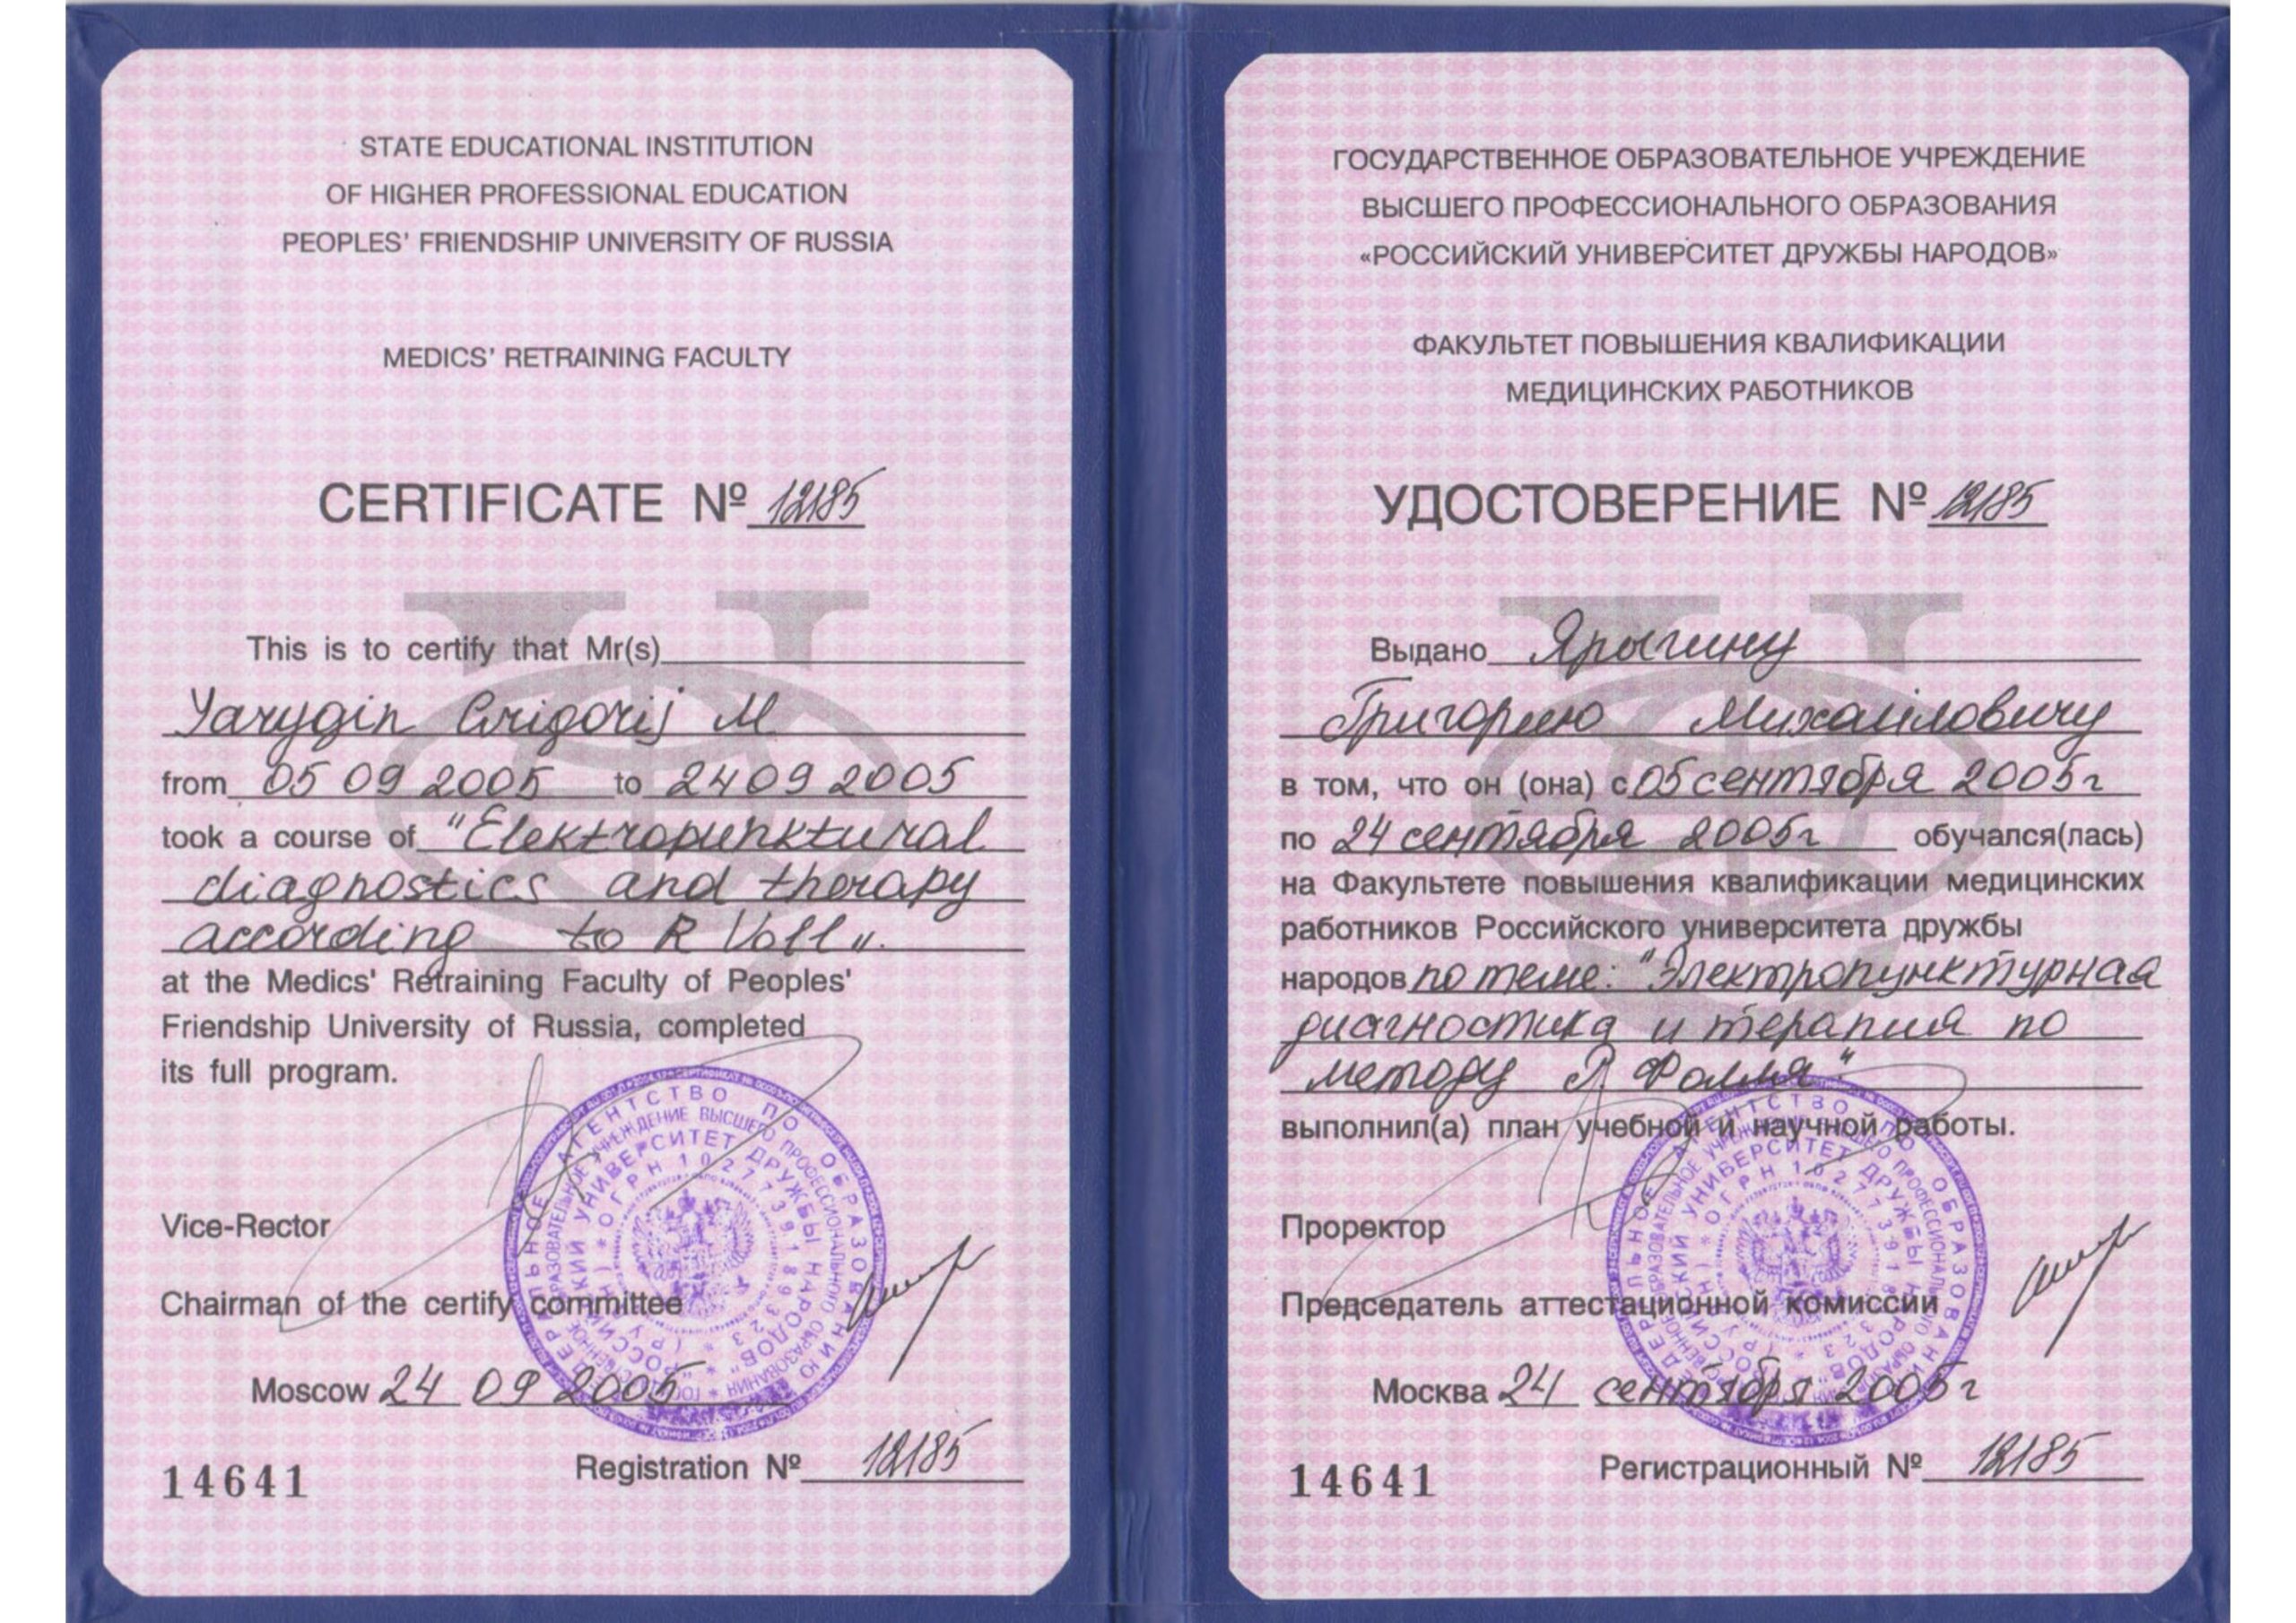 STATE EDUCATIONAL INSTITUTION
OF HIGHER PROFESSIONAL EDUCATION
PEOPLES' FRIENDSHIP UNIVERSITY OF RUSSIA
MEDICS' RETRAINING FACULTY
CERTIFICATE № 12185
This is to certify that Mr(s)
Yarygin Grigorij M
from 05 09 2005 to 24 09 2005
took a course of "Elektropunktural
diagnostics and therapy
according to R Voll".
at the Medics' Retraining Faculty of Peoples'
Friendship University of Russia, completed
its full program.
Vice-Rector
Chairman of the certify committee
Moscow 24 09 2005
Registration № 12185
14641
ГОСУДАРСТВЕННОЕ ОБРАЗОВАТЕЛЬНОЕ УЧРЕЖДЕНИЕ
ВЫСШЕГО ПРОФЕССИОНАЛЬНОГО ОБРАЗОВАНИЯ
«РОССИЙСКИЙ УНИВЕРСИТЕТ ДРУЖБЫ НАРОДОВ»
ФАКУЛЬТЕТ ПОВЫШЕНИЯ КВАЛИФИКАЦИИ
МЕДИЦИНСКИХ РАБОТНИКОВ
УДОСТОВЕРЕНИЕ № 12185
Выдано Ярыгину
Григорию Михайловичу
в том, что он (она) с 05 сентября 2005г
по 24 сентября 2005г обучался(лась)
на Факультете повышения квалификации медицинских
работников Российского университета дружбы
народов по теме: "Электропунктурная
диагностика и терапия по
методу Р Фолля"
выполнил(а) план учебной и научной работы.
Проректор
Председатель аттестационной комиссии
Москва 24 сентября 2005г
Регистрационный № 12185
14641